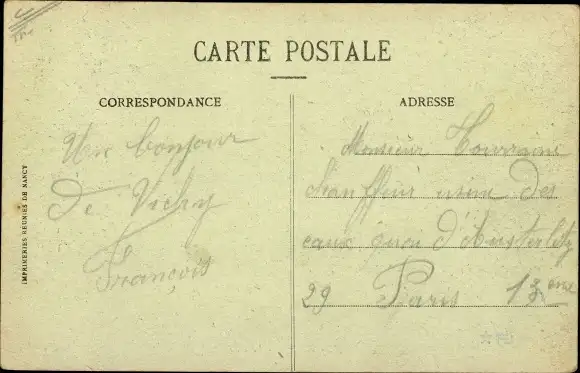 CARTE POSTALE
CORRESPONDANCE
Un bonjour
De Vichy
François
ADRESSE
Monsieur Tourraine
Chauffeur usine Des
eaux quai d'Austerlitz
29 Paris 13eme
IMPRIMERIES REUNIES DE NANCY